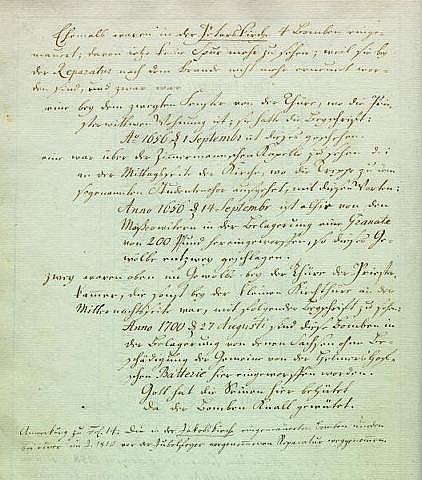 Ehemals waren in der Jakobskirche 4 Bomben einge-
mauret; davon jetzt keine Spur mehr zu sehen; weil sie bey
der Reparatur nach dem Brande nicht mehr erneuert wor-
den sind, und zwar war
eine bey dem zweyten Fenster von der Thüre, wo die
Wohnung ist; sie hatte die Beyschrift:
Aō 1656 d 1 Septembr ist dieses geschehen.
eine war über der Zimmermannschen Kapelle zu sehen d. i.
an der Mittagseite der Kirche, wo die Treppe zu dem
sogenannten Studentenchor aufgehet, mit diesen Worten:
Anno 1656 d 14 Septembr ist alhir von den
Moßkowitern in der Belagerung eine Granate
von 200 Pfund hereingeworffen, so dieses Ge-
wölbe entzwey geschlagen.
zwey waren oben am Gewölbe bey der Thüre der Priester-
kamer, der sonst bey der kleinen Kirchthüre an der
Mitternachtseite war, mit folgender Beyschrift zu sehen:
Anno 1700 d 27 Augusti sind diese Bomben in
der Belagerung von denen Sachsen ohne Be-
schädigung der Gemeine von der
schen Batterie hier eingeworffen worden.
Gott hat die Seinen hier behütet
Da der Bomben Knall gewütet.
Anmerkung zu Die in der Jakobskirche eingemauerten Bomben wurden
im J. 1810 vor der Jubelfeyer vorgenommenen Reparatur weggenommen.